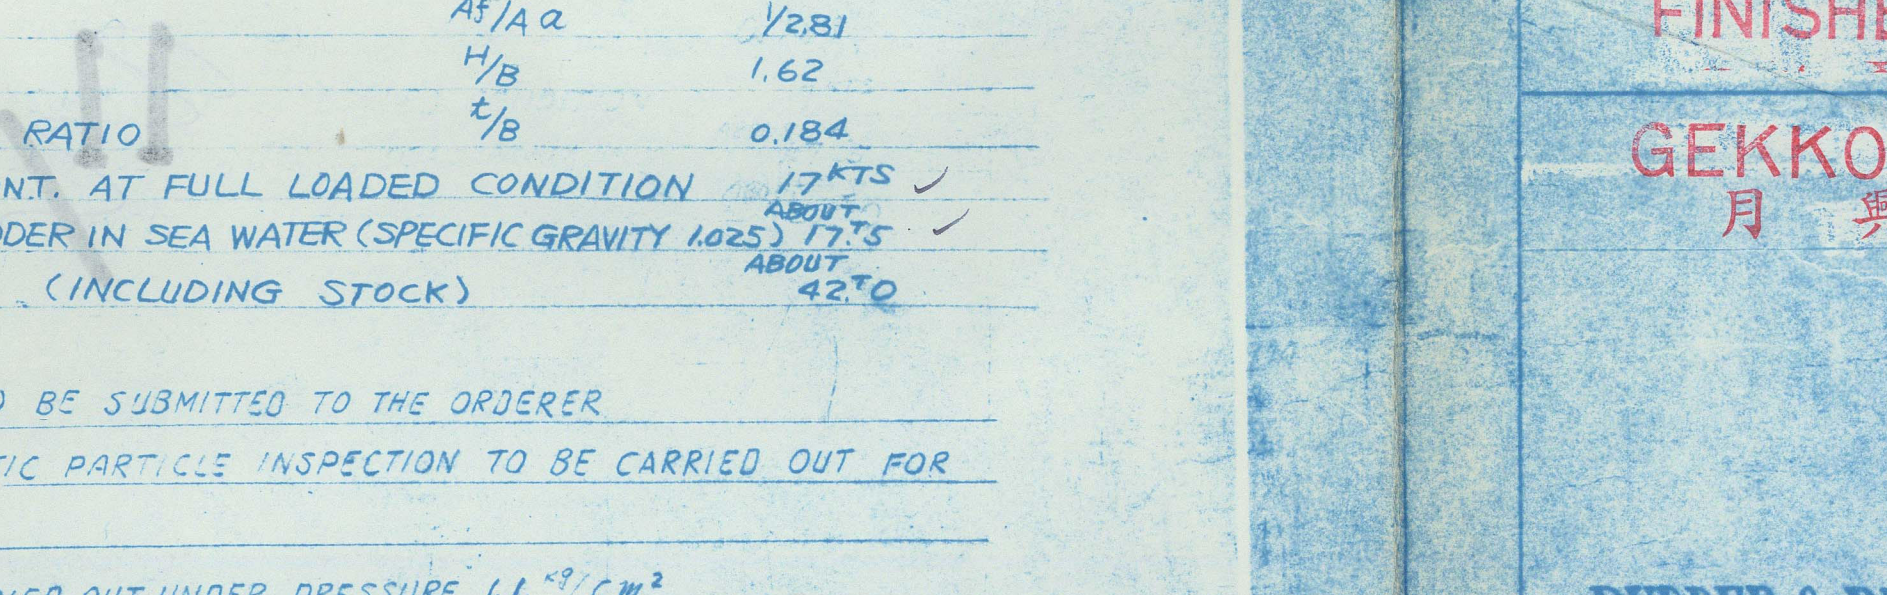 Af/Aa 1/2.81
H/B 1.62
RATIO t/B 0.184
NT. AT FULL LOADED CONDITION 17 KTS
DER IN SEA WATER (SPECIFIC GRAVITY 1.025) ABOUT 17.T5
(INCLUDING STOCK) ABOUT 42.T0
BE SUBMITTED TO THE ORDERER
TIC PARTICLE INSPECTION TO BE CARRIED OUT FOR
OUT UNDER PRESSURE kg/cm²
11
FINISHE
GEKKO
月 興